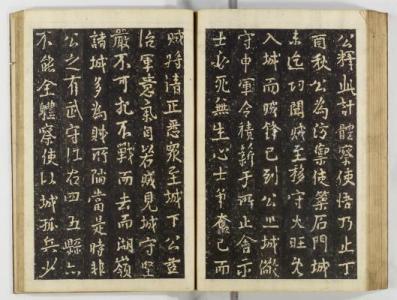 公釋此計體察使悟乃止丁
酉秋公為防禦使築石門城
未迄功聞賊至移守火旺
入城而賊鋒已列公巡城儆
守申軍令積薪于所止舍示
士必死無生心士爭奮已而
賊將清正悉衆至城下公益
治軍意氣自若賊見城守堅
嚴不可犯不戰而去而湖嶺
諸城多為賊所陷當是時非
公之有武守江右四五縣亦
不能全體察使以城孤兵少